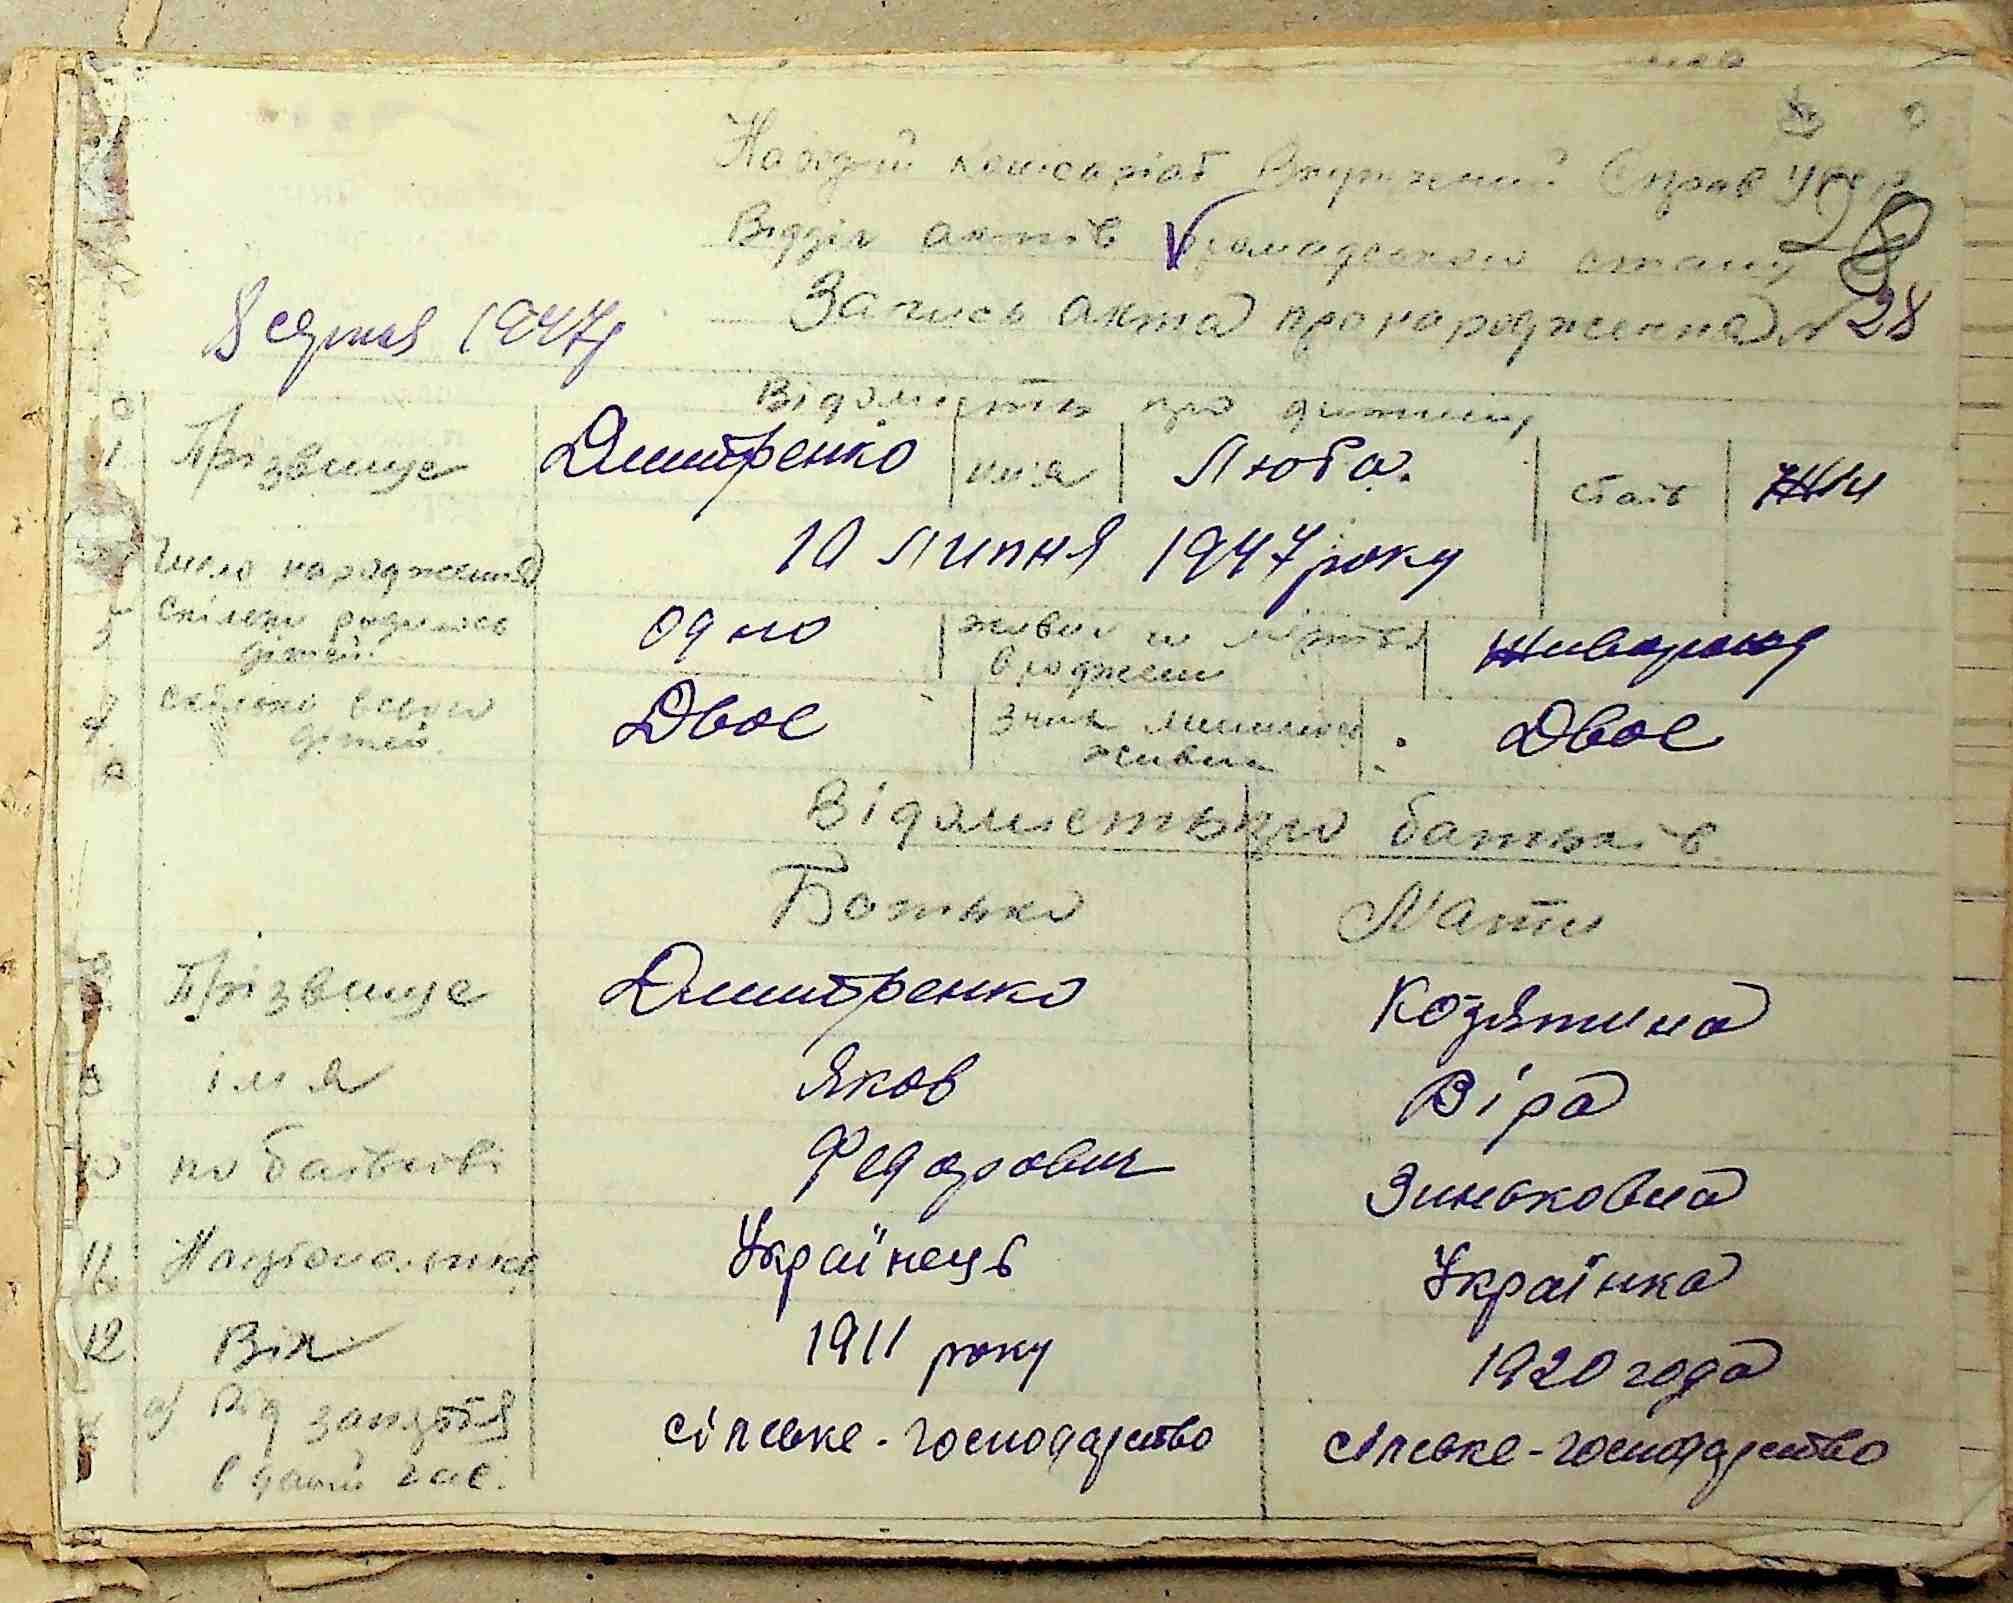 28
Народній комісаріат Внутрішній Справ УРСР
Відділ актів громадського стану
Запись акта про народження № 28
8 серпня 1947 р
Відомость про дитину
1 Прізвище Дмитренко имя Люба. стать Жін
Число народження 10 липня 1947 року
3 Скілько родилось дітей одно живои и мертво вроджен живорожд
4 скілько всього дітей Двое З них лишилось живих Двое
Відомость про батьків
Батько Мати
Прізвище Дмитренко Козятина
імя Яков Віра
10 по батькові Федорович Зиньковна
11 Національність Українець Українка
12 Вік 1911 року 1920 года
а) Від заняття в даний час. сільське-господарство сільске-господарство